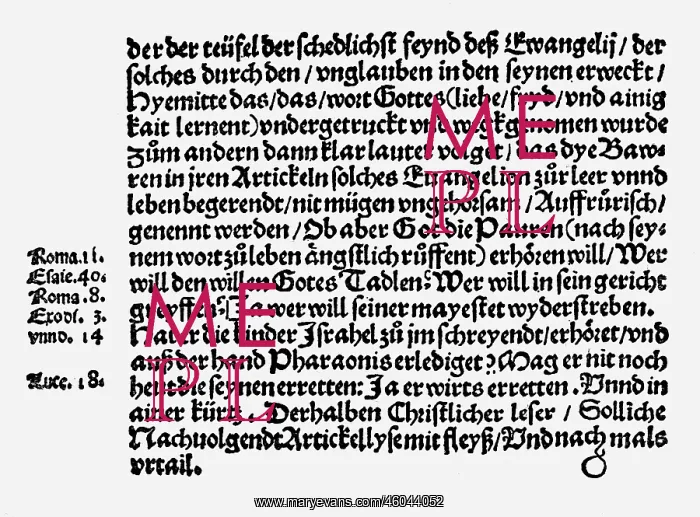 der der teüfel der schedlichst feynd deß Ewangelij / der
solches durch den / vnglauben in den seynen erweckt /
Hyemitte das / das / wort Gottes (liebe / frid / vnd ainig
kait lernent) vndergetruckt vnd wegkgenomen wurde
Zům andern dann klar lauter volget / das dye Baw⸗
ren in jren Artickeln solches Euangelion zůr leer vnnd
leben begerendt / nit mügen vngehorsam / Auffrürisch /
genennt werden / Ob aber Got die Pauren (nach sey⸗
nem wort zůleben ängstlich rüffent) erhören will / Wer
Roma. 11.
will den willen Gotes Tadlen? Wer will in sein gericht
Esaie. 40.
greyffen? Ja wer will seiner mayestet wyderstreben.
Roma. 8.
Hat er die kinder Jsrahel zů jm schreyendt / erhöret / vnd
Exodi. 3.
vnnd. 14
auß der hand Pharaonis erlediget? Mag er nit noch
heut die seynen erretten: Ja er wirts erretten. Vnnd in
Luce. 18.
ainer kürtz. Derhalben Christlicher leser / Solliche
Nachuolgendt Artickel lyse mit fleyß / Vnd nach mals
vrtail.
ME
PL
ME
PL
www.maryevans.com/46044052